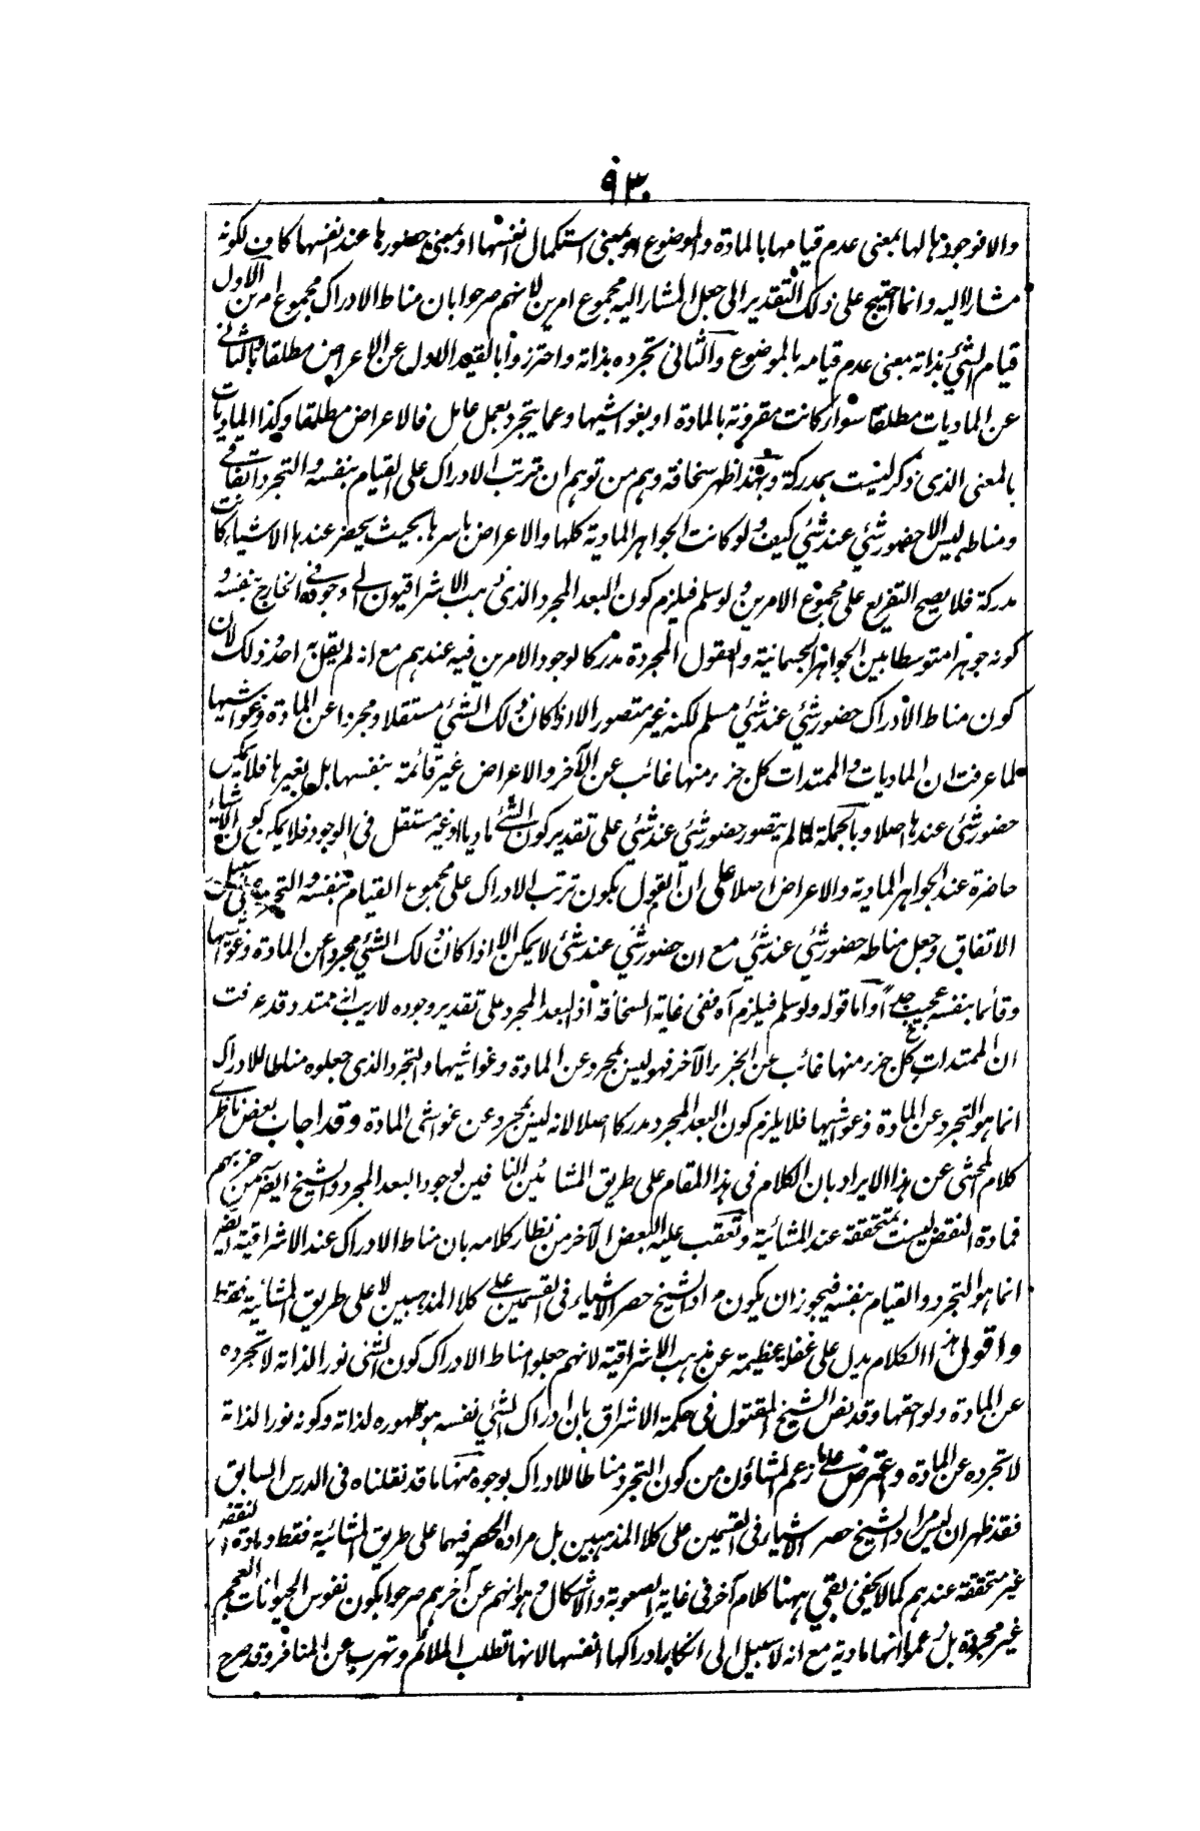 ٩٣
والا فوجودها لها بمعنى عدم قيامها بالمادة والموضوع او بمعنى استكمال انفسها او بمعنى حضورها عند نفسها كاف لكونه
مشارا اليه وانما احتيج على ذلك التقدير الى جعل المشار اليه مجموع امرين لانهم صرحوا بان مناط الادراك مجموع امرين الاول
قيام الشئ بذاته بمعنى عدم قيامه بالموضوع والثانى تجرده بذاته واحترزوا بالقيد الاول عن الاعراض مطلقا وبالثانى
عن الماديات مطلقا سواء كانت مقرونة بالمادة او بغواشيها وعما يتجرد بعمل عامل فالاعراض مطلقا وكذا الماديات
بالمعنى الذى ذكر ليست بمدركة وبهذا ظهر سخافة وهم من توهم ان ترتب الادراك على القيام بنفسه والتجرد اتفاقى
ومناطه ليس الا حضور شئ عند شئ كيف ولو كانت الجواهر المادية كلها والاعراض باسرها بحيث يحضر عندها الاشياء كانت
مدركة فلا يصح التفريع على مجموع الامرين ولو سلم فيلزم كون البعد المجرد الذى ذهب الاشراقيون الى وجوده فى الخارج بنفسه و
كونه جوهرا متوسطا بين الجواهر الجسمانية والعقول المجردة مدركا لوجود الامرين فيه عندهم مع انه لم يقل به احد وذلك لان
كون مناط الادراك حضور شئ عند شئ مسلم لكنه غير متصور الا اذا كان ذلك الشئ مستقلا ومجردا عن المادة وغواشيها
لما عرفت ان الماديات والممتدات كل جزء منها غائب عن الآخر والاعراض غير قائمة بنفسها بل بغيرها فلا يمكن
حضور شئ عندها اصلا وبالجملة لما لم يتصور حضور شئ عند شئ على تقدير كون الشئ ماديا او غير مستقل فى الوجود فلا يمكن كون الاشياء
حاضرة عند الجواهر المادية والاعراض اصلا على ان القول بكون ترتب الادراك على مجموع القيام بنفسه والتجرد على سبيل
الاتفاق وجعل مناطه حضور شئ عند شئ مع ان حضور شئ عند شئ لا يمكن الا اذا كان ذلك الشئ مجردا عن المادة وغواشيها
وقائما بنفسه عجيب جدا واما قوله ولو سلم فيلزم آه ففى غاية السخافة اذ البعد المجرد على تقدير وجوده لا ريب انه ممتد وقد عرفت
ان الممتدات كل جزء منها غائب عن الجزء الآخر فهو ليس بمجرد عن المادة وغواشيها والتجرد الذى جعلوه مناطا للادراك
انما هو التجرد عن المادة وغواشيها فلا يلزم كون البعد المجرد مدركا اصلا لانه ليس بمجرد عن غواشى المادة وقد اجاب بعض ناظرى
كلام المحشى عن هذا الايراد بان الكلام فى هذا المقام على طريق المشائين النافين لوجود البعد المجرد والشيخ ايضا من حزبهم
فمادة النقض ليست بمتحققة عند المشائية وتعقب عليه البعض الآخر من نظار كلامه بان مناط الادراك عند الاشراقية ايضا
انما هو التجرد والقيام بنفسه فيجوز ان يكون مراد الشيخ حصر الاشياء فى القسمين على كلا المذهبين لا على طريق المشائية فقط
واقول هذا الكلام يدل على غفلة عظيمة عن مذهب الاشراقية لانهم جعلوا مناط الادراك كون الشئ نورا لذاته لا تجرده
عن المادة ولواحقها وقد نص الشيخ المقتول فى حكمة الاشراق بان ادراك الشئ نفسه هو ظهوره لذاته وكونه نورا لذاته
لا تجرده عن المادة واعترض على ما زعم المشاؤن من كون التجرد مناطا للادراك بوجوه منها ما قد نقلناه فى الدرس السابق
فقد ظهر ان ليس مراد الشيخ حصر الاشياء فى القسمين على كلا المذهبين بل مراده الحصر فيهما على طريق المشائية فقط ومادة النقض
غير متحققة عندهم كما لا يخفى بقى ههنا كلام آخر فى غاية الصعوبة والاشكال وهو انهم عن آخرهم صرحوا بكون نفوس الحيوانات العجم
غير مجردة بل زعموا انها مادية مع انه لا سبيل الى انكار ادراكها انفسها لانها تطلب الملائم وتهرب عن المنافر وقد صرح